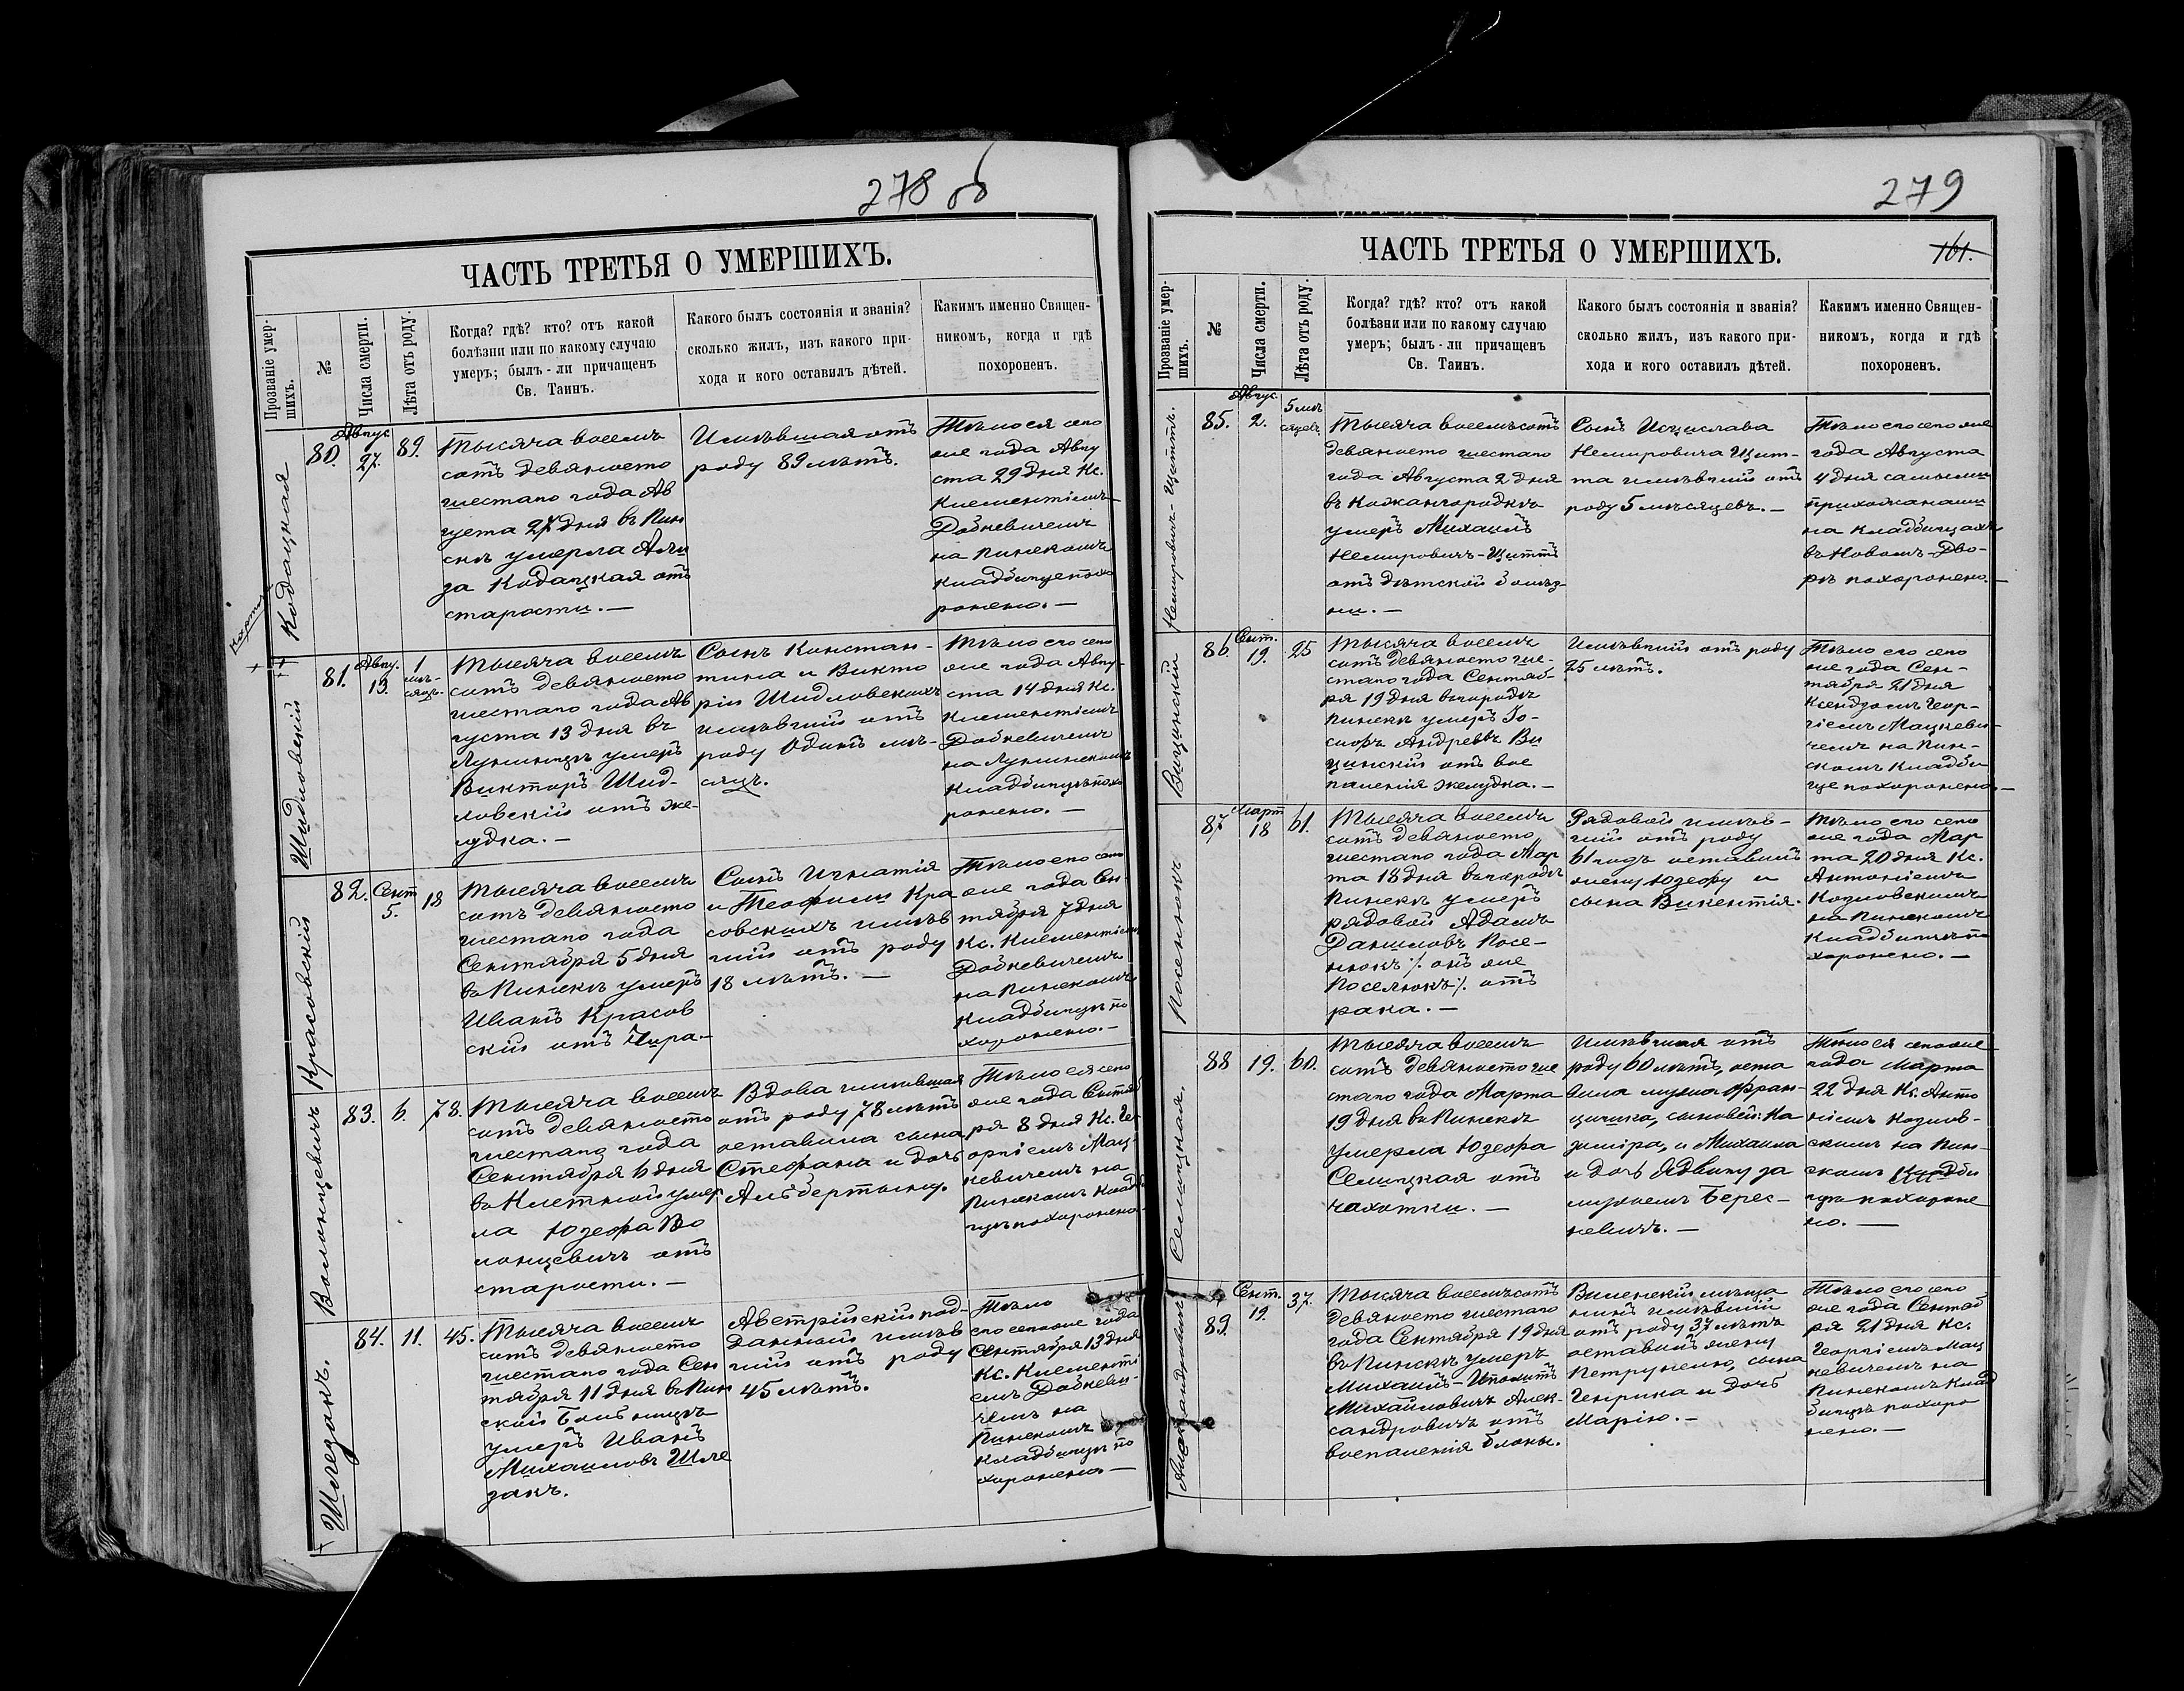 278 об
ЧАСТЬ ТРЕТЬЯ О УМЕРШИХЪ.
Прозваніе умер-
шихъ.
№
Числа смерти.
Лѣта отъ роду.
Когда? гдѣ? кто? отъ какой
болѣзни или по какому случаю
умеръ; былъ-ли причащенъ
Св. Таинъ.
Какого былъ состоянія и званія?
сколько жилъ, изъ какого при-
хода и кого оставилъ дѣтей.
Какимъ именно Священ-
никомъ, когда и гдѣ
похороненъ.
Кодацкая
80.
Авгус
27.
89.
Тысяча восемь
сотъ девяносто
шестаго года Ав
густа 27 дня въ Пин
скѣ умерла
за Кодацкая отъ
старости. —
Имѣвшая отъ
роду 89 лѣтъ.
Тѣло ея сего
же года Авгу
ста 29 дня Кс.
Клементіемъ
Добкевичемъ
на Пинскомъ
кладбище похо
ронено. —
Шидловскій
81.
Авгу.
13.
1
мѣ-
сяцъ.
Тысяча восемь
сотъ девяносто
шестаго года Ав
густа 13 дня въ
Лунинцѣ умеръ
Викторъ Шид-
ловскій отъ же-
лудка. —
Сынъ Констан-
тина и Викто
ріи Шидловскихъ
имѣвшій отъ
роду одинъ мѣ-
сяцъ.
Тѣло его сего
же года Авгу-
ста 14 дня Кс.
Клементіемъ
Добкевичемъ
на Лунинскомъ
кладбищѣ похо
ронено. —
Красовскій
82.
Сент
5.
18
Тысяча восемь
сотъ девяносто
шестаго года
Сентября 5 дня
въ Пинскѣ умеръ
Иванъ Красов
скій отъ
Сынъ Игнатія
и Теофили Кра
совскихъ имѣв
шій отъ роду
18 лѣтъ. —
Тѣло его сего
же года Сен
тября 7 дня
Кс. Клементіемъ
Добкевичемъ
на Пинскомъ
кладбищѣ по
хоронено. —
Волонцевичъ
83.
6.
78.
Тысяча восемь
сотъ девяносто
шестаго года
Сентября 6 дня
въ Клетной умер
ла Юзефа Во
лонцевичъ отъ
старости. —
Вдова имѣвшая
отъ роду 78 лѣтъ
оставила сына
Стефана и дочь
Альбертыну.
Тѣло ея сего
же года Сентяб
ря 8 дня Кс. Ге
оргіемъ Мац-
кевичемъ на
Пинскомъ кладб
щѣ похоронено
Шлезакъ.
84.
11.
45.
Тысяча восемь
сотъ девяносто
шестаго года Сен
тября 11 дня въ Пин
ской больницѣ
умеръ Иванъ
Михаиловъ Шле
закъ.
Австрійскій под-
данный имѣв
шій отъ роду
45 лѣтъ.
Тѣло
его сего же года
Сентября 13 дня
Кс. Клементі
емъ Добкеви-
чемъ на
Пинскомъ
кладбищѣ по
хоронено —
279
ЧАСТЬ ТРЕТЬЯ О УМЕРШИХЪ.
161.
Прозваніе умер-
шихъ.
№
Числа смерти.
Лѣта отъ роду.
Когда? гдѣ? кто? отъ какой
болѣзни или по какому случаю
умеръ; былъ-ли причащенъ
Св. Таинъ.
Какого былъ состоянія и званія?
сколько жилъ, изъ какого при-
хода и кого оставилъ дѣтей.
Какимъ именно Священ-
никомъ, когда и гдѣ
похороненъ.
Немировичъ-Щиттъ.
85.
Авгус.
2.
5 мѣ
сяцевъ
Тысяча восемьсотъ
девяносто шестаго
года Августа 2 дня
въ Кожангородкѣ
умеръ Михаилъ
Немировичъ-Щиттъ
отъ дѣтской болѣз-
ни. —
Сынъ Исцислава
Немировича Щит-
та имѣвшій отъ
роду 5 мѣсяцевъ. —
Тѣло его сего же
года Августа
4 дня самыми
прихожанами
на кладбищахъ
въ Новомъ-Дво-
рѣ похоронено. —
Вицинскій
86.
Сент.
19.
25
Тысяча восемь
сотъ девяносто ше-
стаго года Сентяб-
ря 19 дня въ городѣ
Пинскѣ умеръ Іо-
сифъ Андреевъ Ви
цинскій отъ вос
паленія желудка. —
Имѣвшій отъ роду
25 лѣтъ.
Тѣло его сего
же года Сен-
тября 21 дня
Ксендзомъ Геор-
гіемъ Мацкеви-
чемъ на Пин-
скомъ кладби
ще похоронено. —
Носенюкъ
87
Март
18
61.
Тысяча восемь
сотъ девяносто
шестаго года Мар
та 18 дня въ городѣ
Пинскѣ умеръ
рядовой Адамъ
Даниловъ Носе-
нюкъ /. онъ же
Поселюкъ /. отъ
рака. —
Рядовой имѣв-
шій отъ роду
61 годъ оставилъ
жену Юзефу и
сына Викентія.
Тѣло его сего
же года Мар
та 20 дня Кс.
Антоніемъ
Козловскимъ
на Пинскомъ
кладбищѣ по
хоронено. —
Селицкая.
88
19.
60.
Тысяча восемь
сотъ девяносто ше
стаго года Марта
19 дня въ Пинскѣ
умерла Юзефа
Селицкая отъ
чахотки. —
Имѣвшая отъ
роду 60 лѣтъ, оста
вила мужа Фран-
цишка, сыновей: Ка
зиміра, и Михаила
и дочь Ядвигу за
мужемъ Берес-
невичъ. —
Тѣло ея сего же
года Марта
22 дня Кс. Анто
ніемъ Козлов-
скимъ на Пин-
скомъ кладби
щѣ похороне
но. —
Александровичъ
89.
Сент.
19.
37.
Тысяча восемьсотъ
девяносто шестаго
года Сентября 19 дня
въ Пинскѣ умеръ
Михаилъ-Иполитъ
Михайловичъ Алек-
сандровичъ отъ
воспаленія блоны.
Виленскій мѣща
нинъ имѣвшій
отъ роду 37 лѣтъ
оставилъ жену
Петрунелю, сына
Генрика и дочь
Марію. —
Тѣло его сего
же года Сентяб
ря 21 дня Кс.
Георгіемъ Мац
кевичемъ на
Пинскомъ клад
бищѣ похоро
нено. —